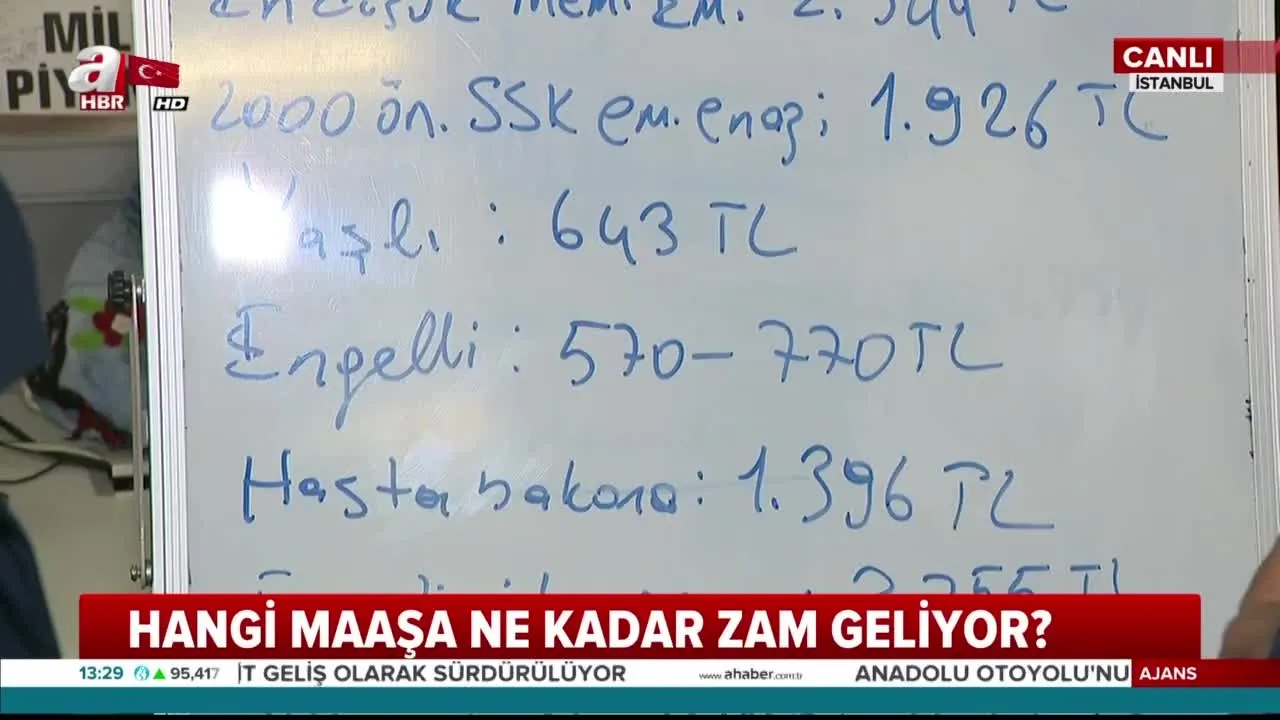 MİL
PİY
a
HBR
HD
CANLI
İSTANBUL
2000 ön. SSK em. enaz; 1.926 TL
Yaşlı : 643 TL
Engelli : 570-770 TL
Hasta bakana: 1.396 TL
HANGİ MAAŞA NE KADAR ZAM GELİYOR?
13:29 95,417 İT GELİŞ OLARAK SÜRDÜRÜLÜYOR www.ahaber.com.tr ANADOLU OTOYOLU'NU AJANS